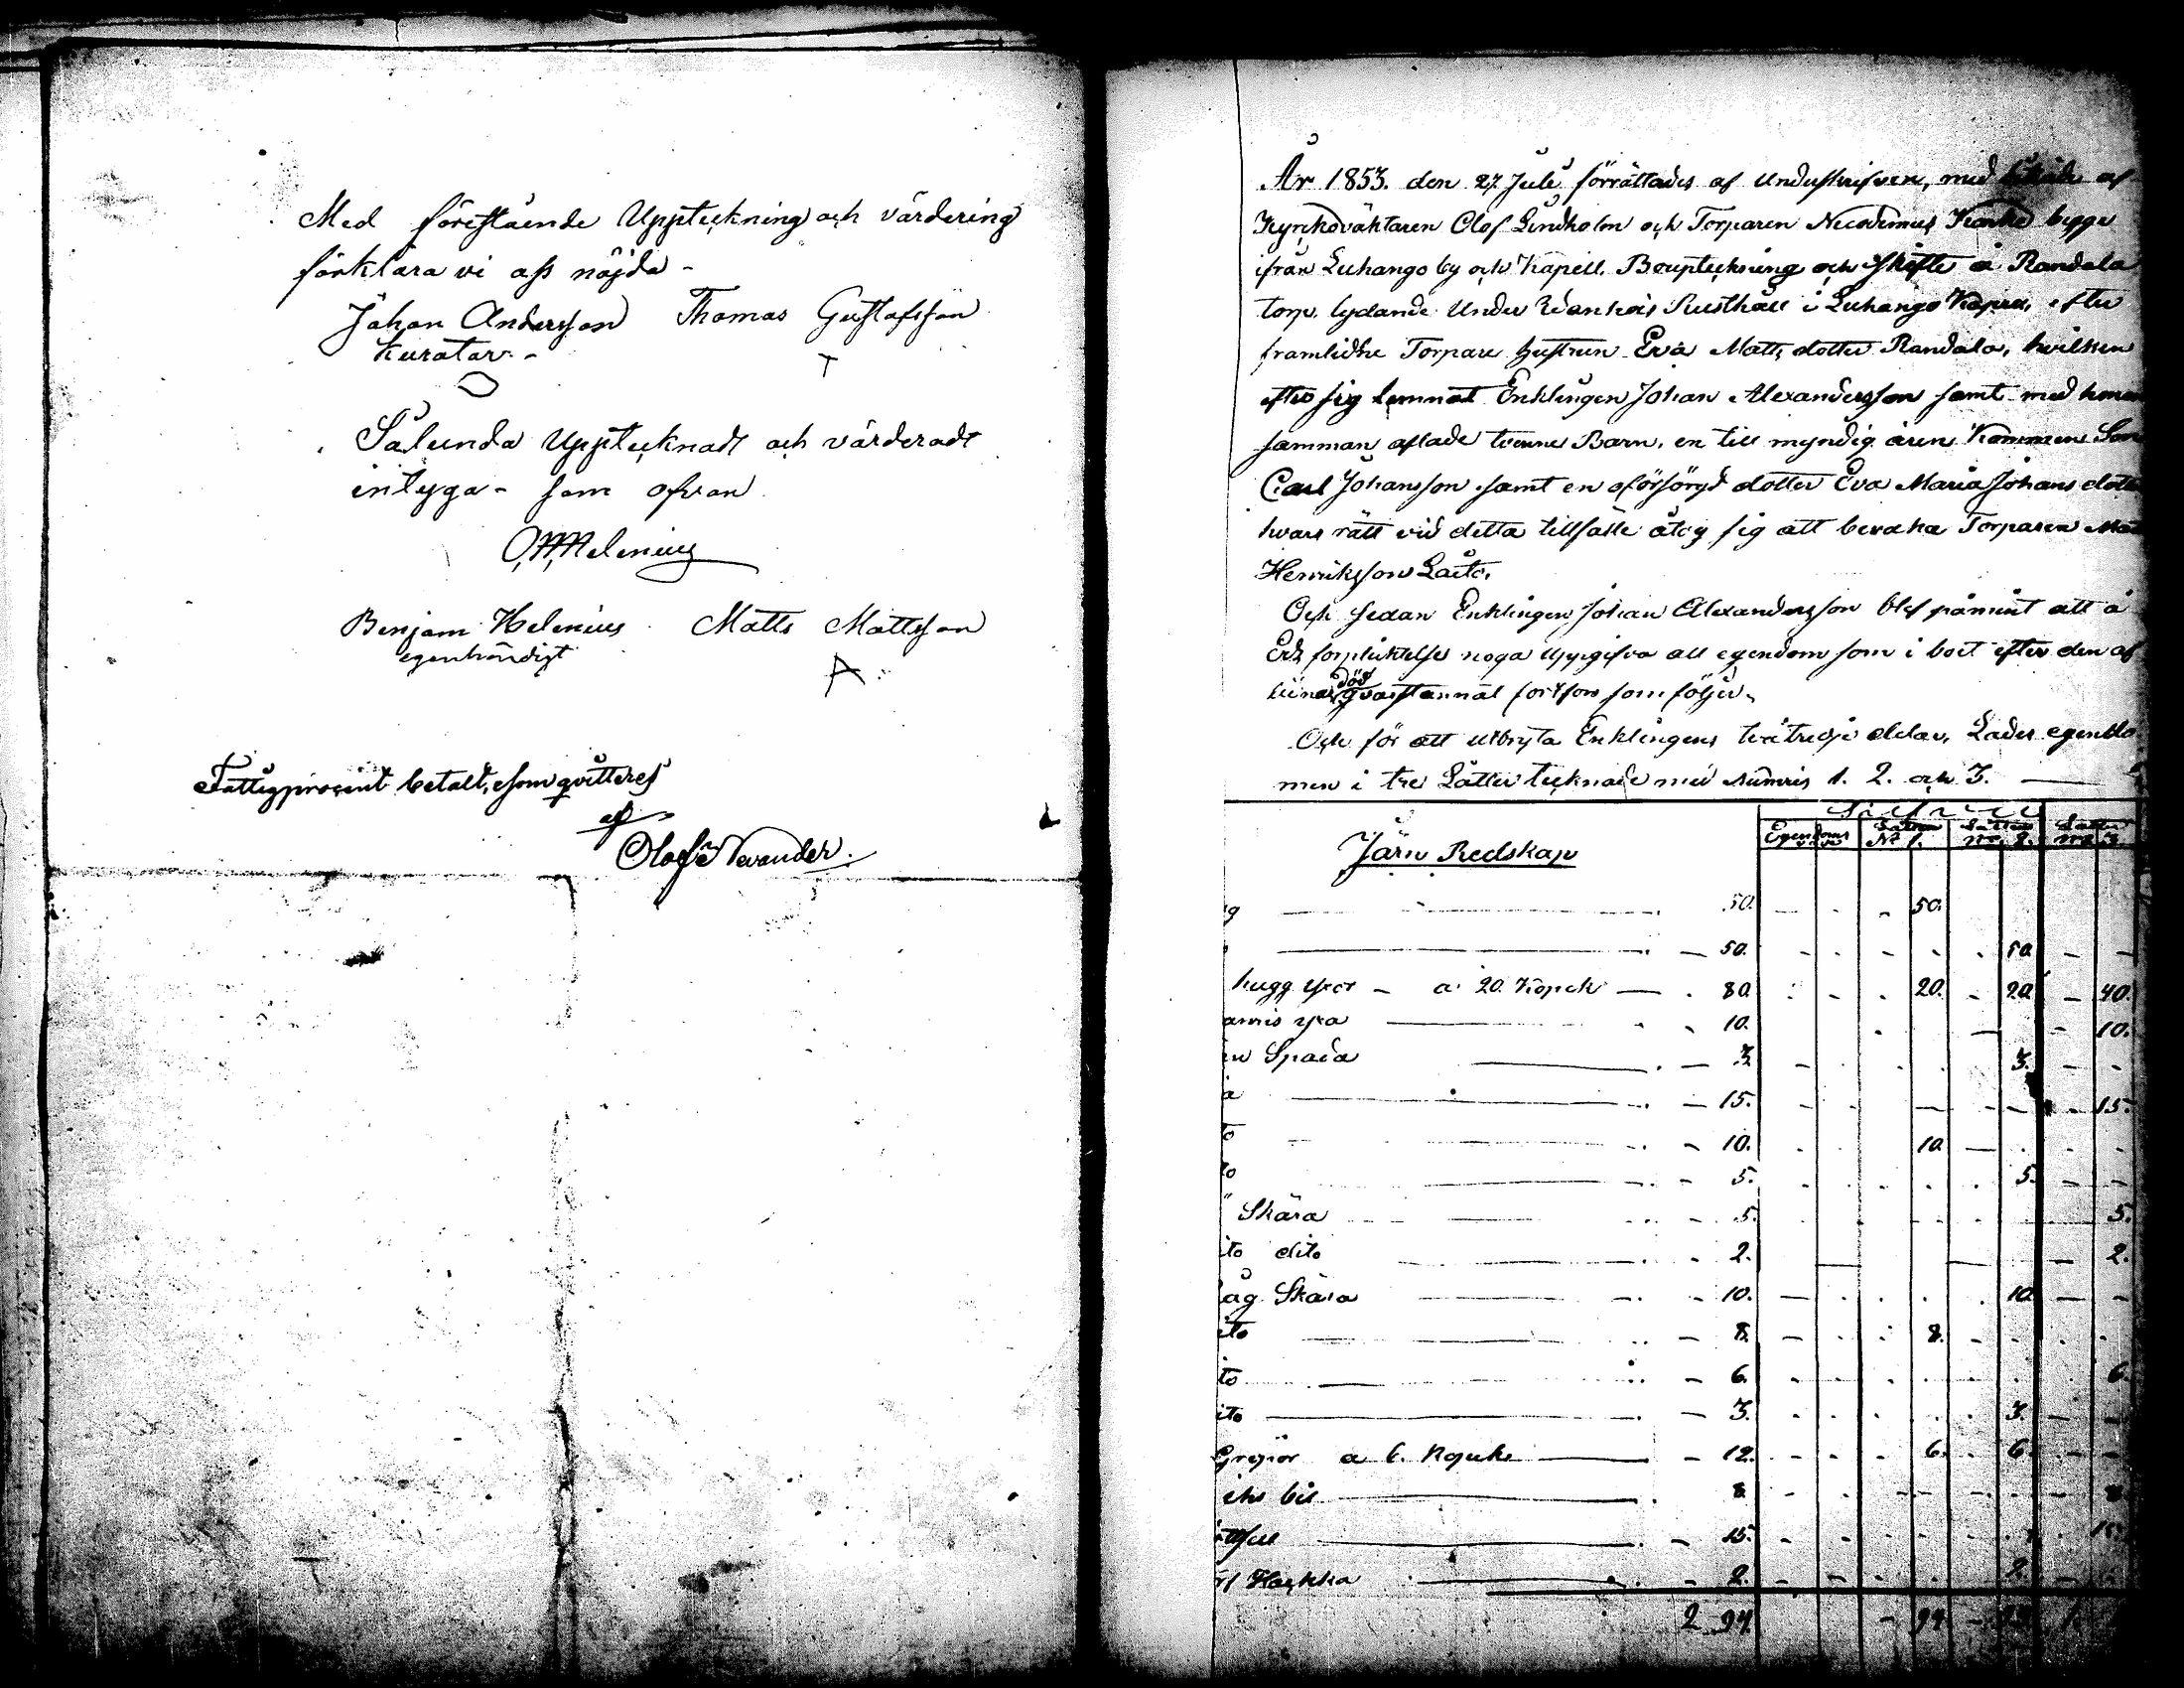 Med förestående Uppteckning och värdering
förklara vi oss nöjda -
Johan Andersson Thomas Gustafsson
Kurator -
Sålunda Upptecknadt och värderadt
intyga - som ofvan
Benjam Helenius Matts Mattsson
egenhändigt
Fattigprocent betalt, som qvitteres
af
Olof Nevander
År 1853. den 27 Juli förrättades af Underskrifven, med af
Kyrkoväktaren Olof Lindholm och Torparen Nicodemus begge
ifrån Luhango by och Kapell, Bouptekning och skifte å Randala
torp, lydande Under Rusthåll i Luhango Kapell, efter
framlidne Torpare hustrun Eva Matts dotter Randala, hvilken
efter sig lemnat Enklingen Johan Alexandersson samt med honom
samman aflade tvenne Barn, en till myndig åren Kommen Son
Carl Johansson samt en oförsörgd dotter Eva Maria Johans dotter
hvars rätt vid detta tillfälle åtog sig att bevaka Torparen
Henriksson
Och sedan Enklingen Johan Alexandersson blef påmint att å
Eds förpliktelse noga Uppgifva all egendom som i boet efter den af
lidnas död qvarstannat som följer,
Och för att utbryta Enklingens två tredje delar, Lades egendo
men i tre Låtter tecknade med Numris 1. 2. och 3.
Järn Redskap
Egendoms Låtten N 1. Låtten No 2. Låtten No 3.
50. 50.
50. 50
hugg yxor - a 20. Kopek 80. 20. 20 40.
yxa 10. 10.
Spada 3. 3.
15. 15.
10. 10
5. 5.
Skära 5. 5.
ito dito 2. 2.
Skära 10. 10
ito 8. 8.
to 6. 6.
ito 3. 3.
Grepor a 6. Kopek 12. 6. 6.
bil 8. 8.
15. 15.
2. 2.
2 94. 94